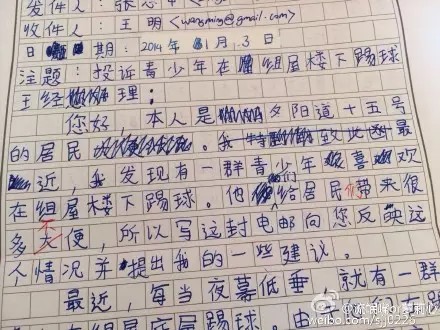 发件人：张志
收件人：王明<wangming@gmail.com>
日期：2014年1月3日
注题：投诉青少年在组屋楼下踢球
王经理：
您好，本人是夕阳道十五号
的居民。我最
近，我发现有一群青少年喜欢
在组屋楼下踢球。他们给居民们带来很
多不便，所以写这封电邮向您反映这
人情况并提出我的一些建议。
最近，每当夜幕低垂，就有一群
在组屋底层踢球。由
weibo.com/sj0226